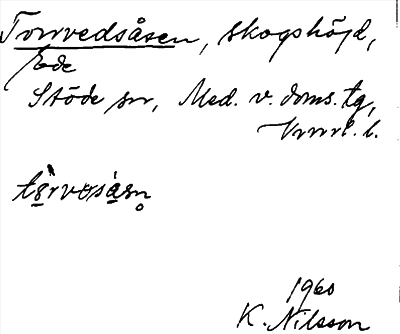 Torrvedsåsen, skogshöjd,
Ede
Stöde sn, Med. v. doms. tg,
Vnrrl. l.
1960
K. Nilsson